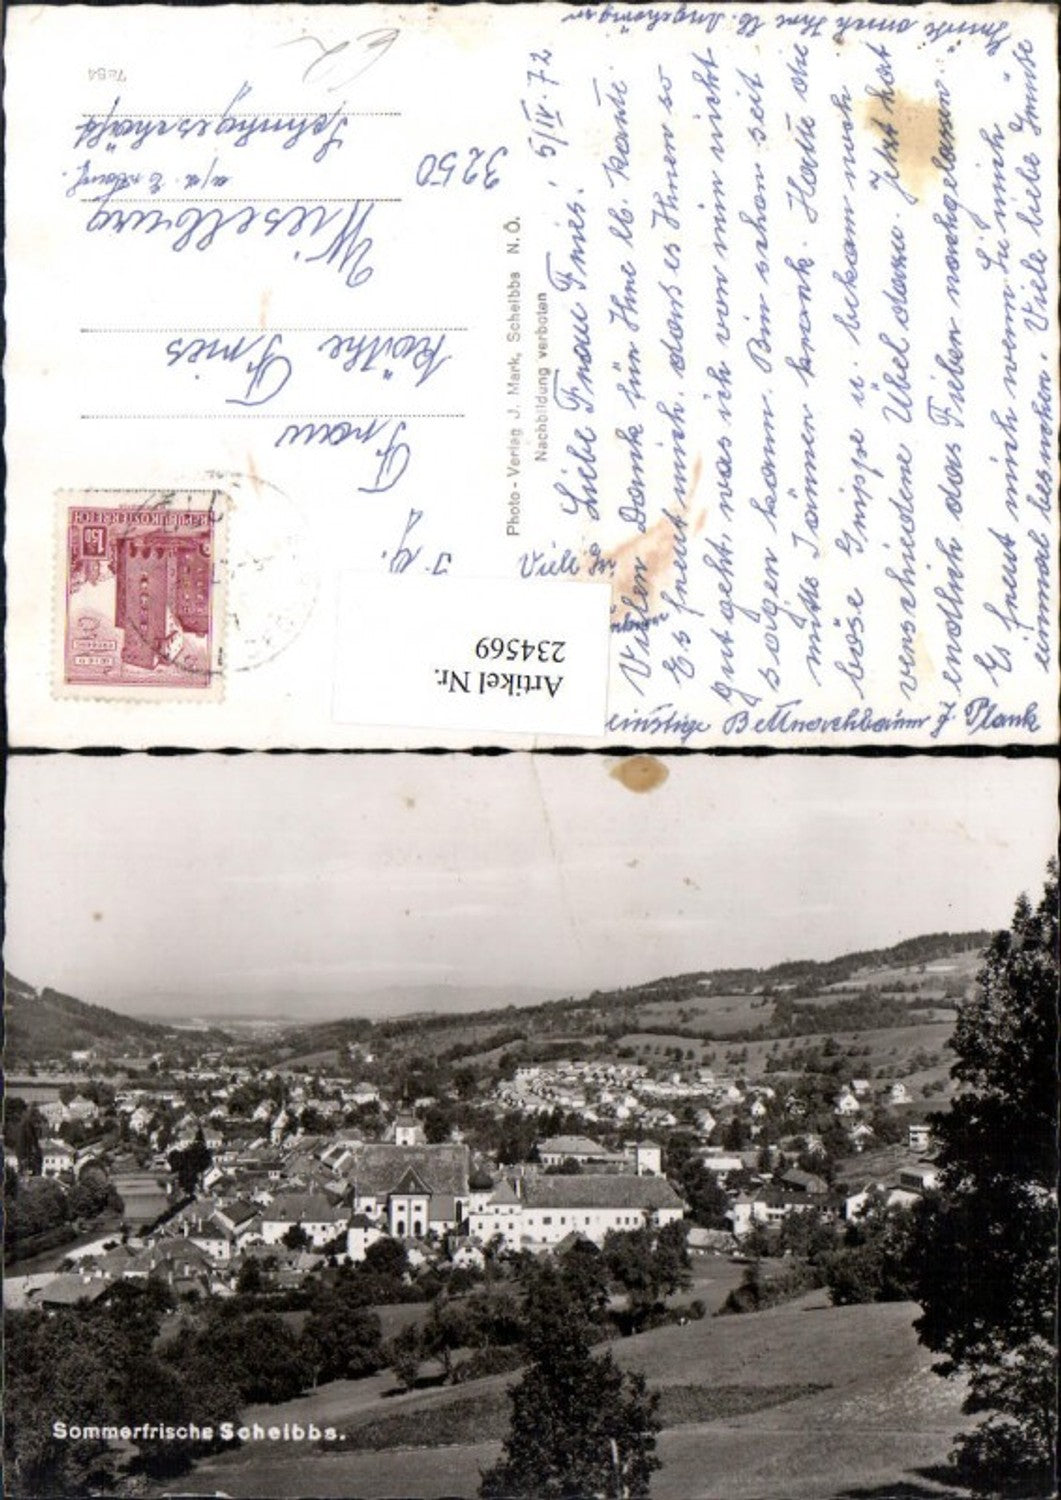 5/IV. 72
Liebe Frau Fries!
Vielen Dank für Ihre lb. Karte
Es freut mich, dass es Ihnen so
gut geht, was ich von mir nicht
sagen kann. Bin schon seit
mitte Jänner krank. Hatte die
böse Grippe u. bekam noch
verschiedene Übel dazu. Jetzt hat
endlich das Fieber nachgelassen.
Es freut mich wenn Sie mich
einmal besuchen. Viele liebe Grüsse
Grüsse auch Ihre lb. Angehörigen
Viele Gr
einstige Bettnachbarin J. Plank
Photo-Verlag J. Mark, Scheibbs N. Ö.
Nachbildung verboten
Frau
Käthe Fries
Wieselburg
a/d. Erlauf.
3250
7284
REPUBLIK ÖSTERREICH
1.50
Artikel Nr.
234569
Sommerfrische Scheibbs.